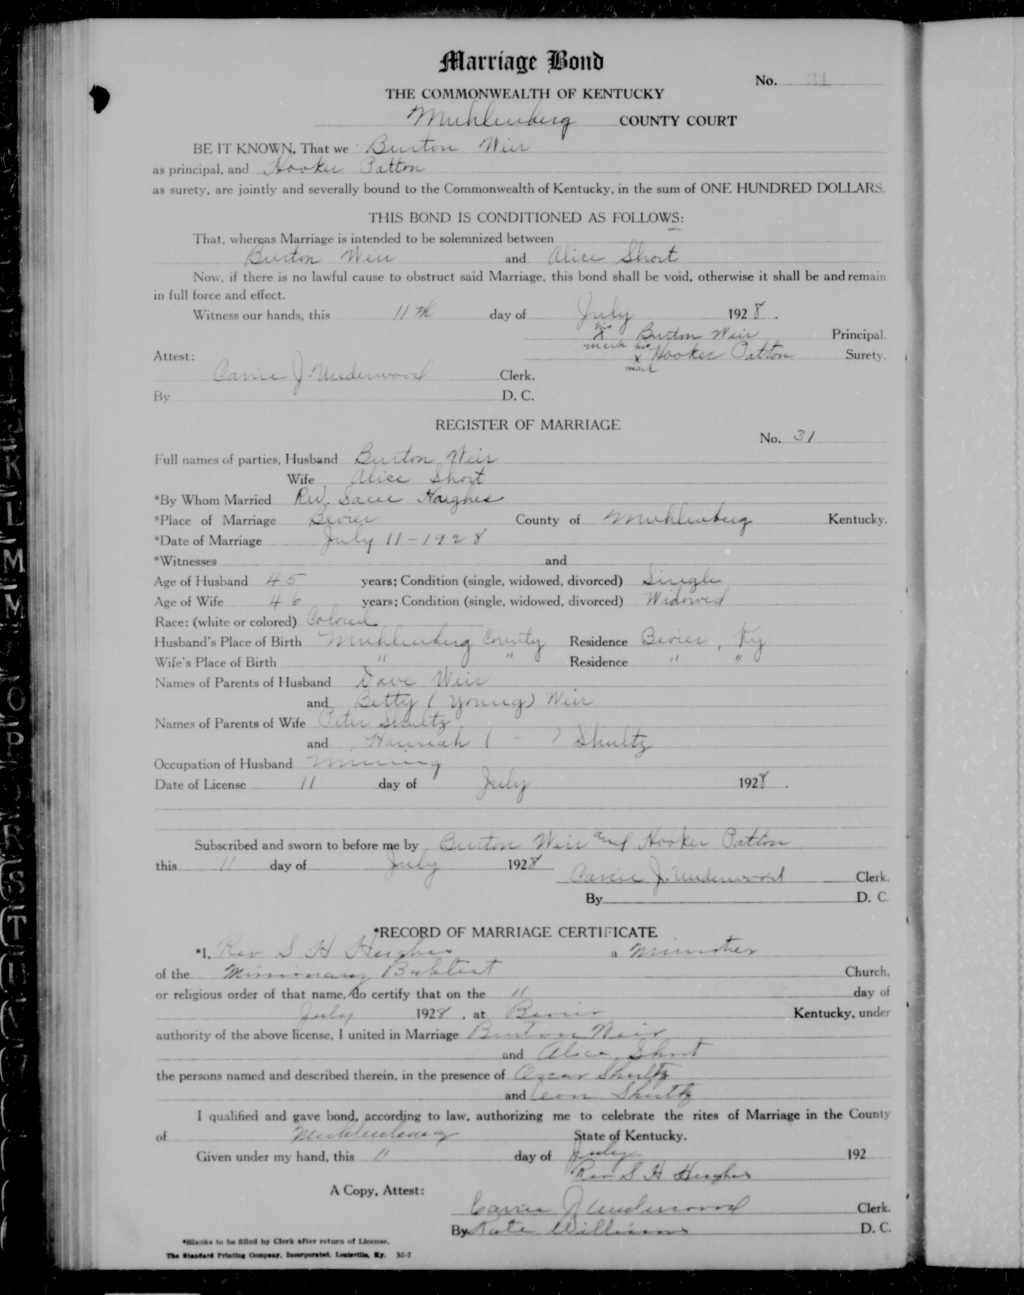 Marriage Bond
No. 31
THE COMMONWEALTH OF KENTUCKY
Muhlenberg COUNTY COURT
BE IT KNOWN, That we Burton Weir
as principal, and Hooker Patton
as surety, are jointly and severally bound to the Commonwealth of Kentucky, in the sum of ONE HUNDRED DOLLARS.
THIS BOND IS CONDITIONED AS FOLLOWS:
That, whereas Marriage is intended to be solemnized between
Burton Weir and Alice Short
Now, if there is no lawful cause to obstruct said Marriage, this bond shall be void, otherwise it shall be and remain
in full force and effect.
Witness our hands, this 11th day of July 1928.
his x mark Burton Weir Principal.
his x mark Hooker Patton Surety.
Attest:
Carrie J. Underwood Clerk.
By D. C.
REGISTER OF MARRIAGE
No. 31
Full names of parties, Husband Burton Weir
Wife Alice Short
*By Whom Married Rev. Hughes
*Place of Marriage Bevier County of Muhlenberg Kentucky.
*Date of Marriage July 11-1928
*Witnesses and
Age of Husband 45 years; Condition (single, widowed, divorced) Single
Age of Wife 46 years; Condition (single, widowed, divorced) Widowed
Race: (white or colored) Colored
Husband's Place of Birth Muhlenberg County Residence Bevier, Ky
Wife's Place of Birth " " Residence " "
Names of Parents of Husband Dave Weir
and Betty (Young) Weir
Names of Parents of Wife Peter Shultz
and Hannah ( - ) Shultz
Occupation of Husband Mining
Date of License 11 day of July 1928.
Subscribed and sworn to before me by Burton Weir and Hooker Patton
this 11 day of July 1928
Carrie J. Underwood Clerk.
By D. C.
*RECORD OF MARRIAGE CERTIFICATE
*I, Rev S H Hughes a Minister
of the Missionary Babtist Church,
or religious order of that name, do certify that on the 11 day of
July 1928, at Bevier Kentucky, under
authority of the above license, I united in Marriage Burton Weir
and Alice Short
the persons named and described therein, in the presence of Oscar Shultz
and Leon Shultz
I qualified and gave bond, according to law, authorizing me to celebrate the rites of Marriage in the County
of Muhlenberg State of Kentucky.
Given under my hand, this 11 day of July 192
Rev S H Hughes
A Copy, Attest:
Carrie J Underwood Clerk.
By Kate Williams D. C.
*Blanks to be filled by Clerk after return of License.
The Standard Printing Company, Incorporated, Louisville, Ky. M-7